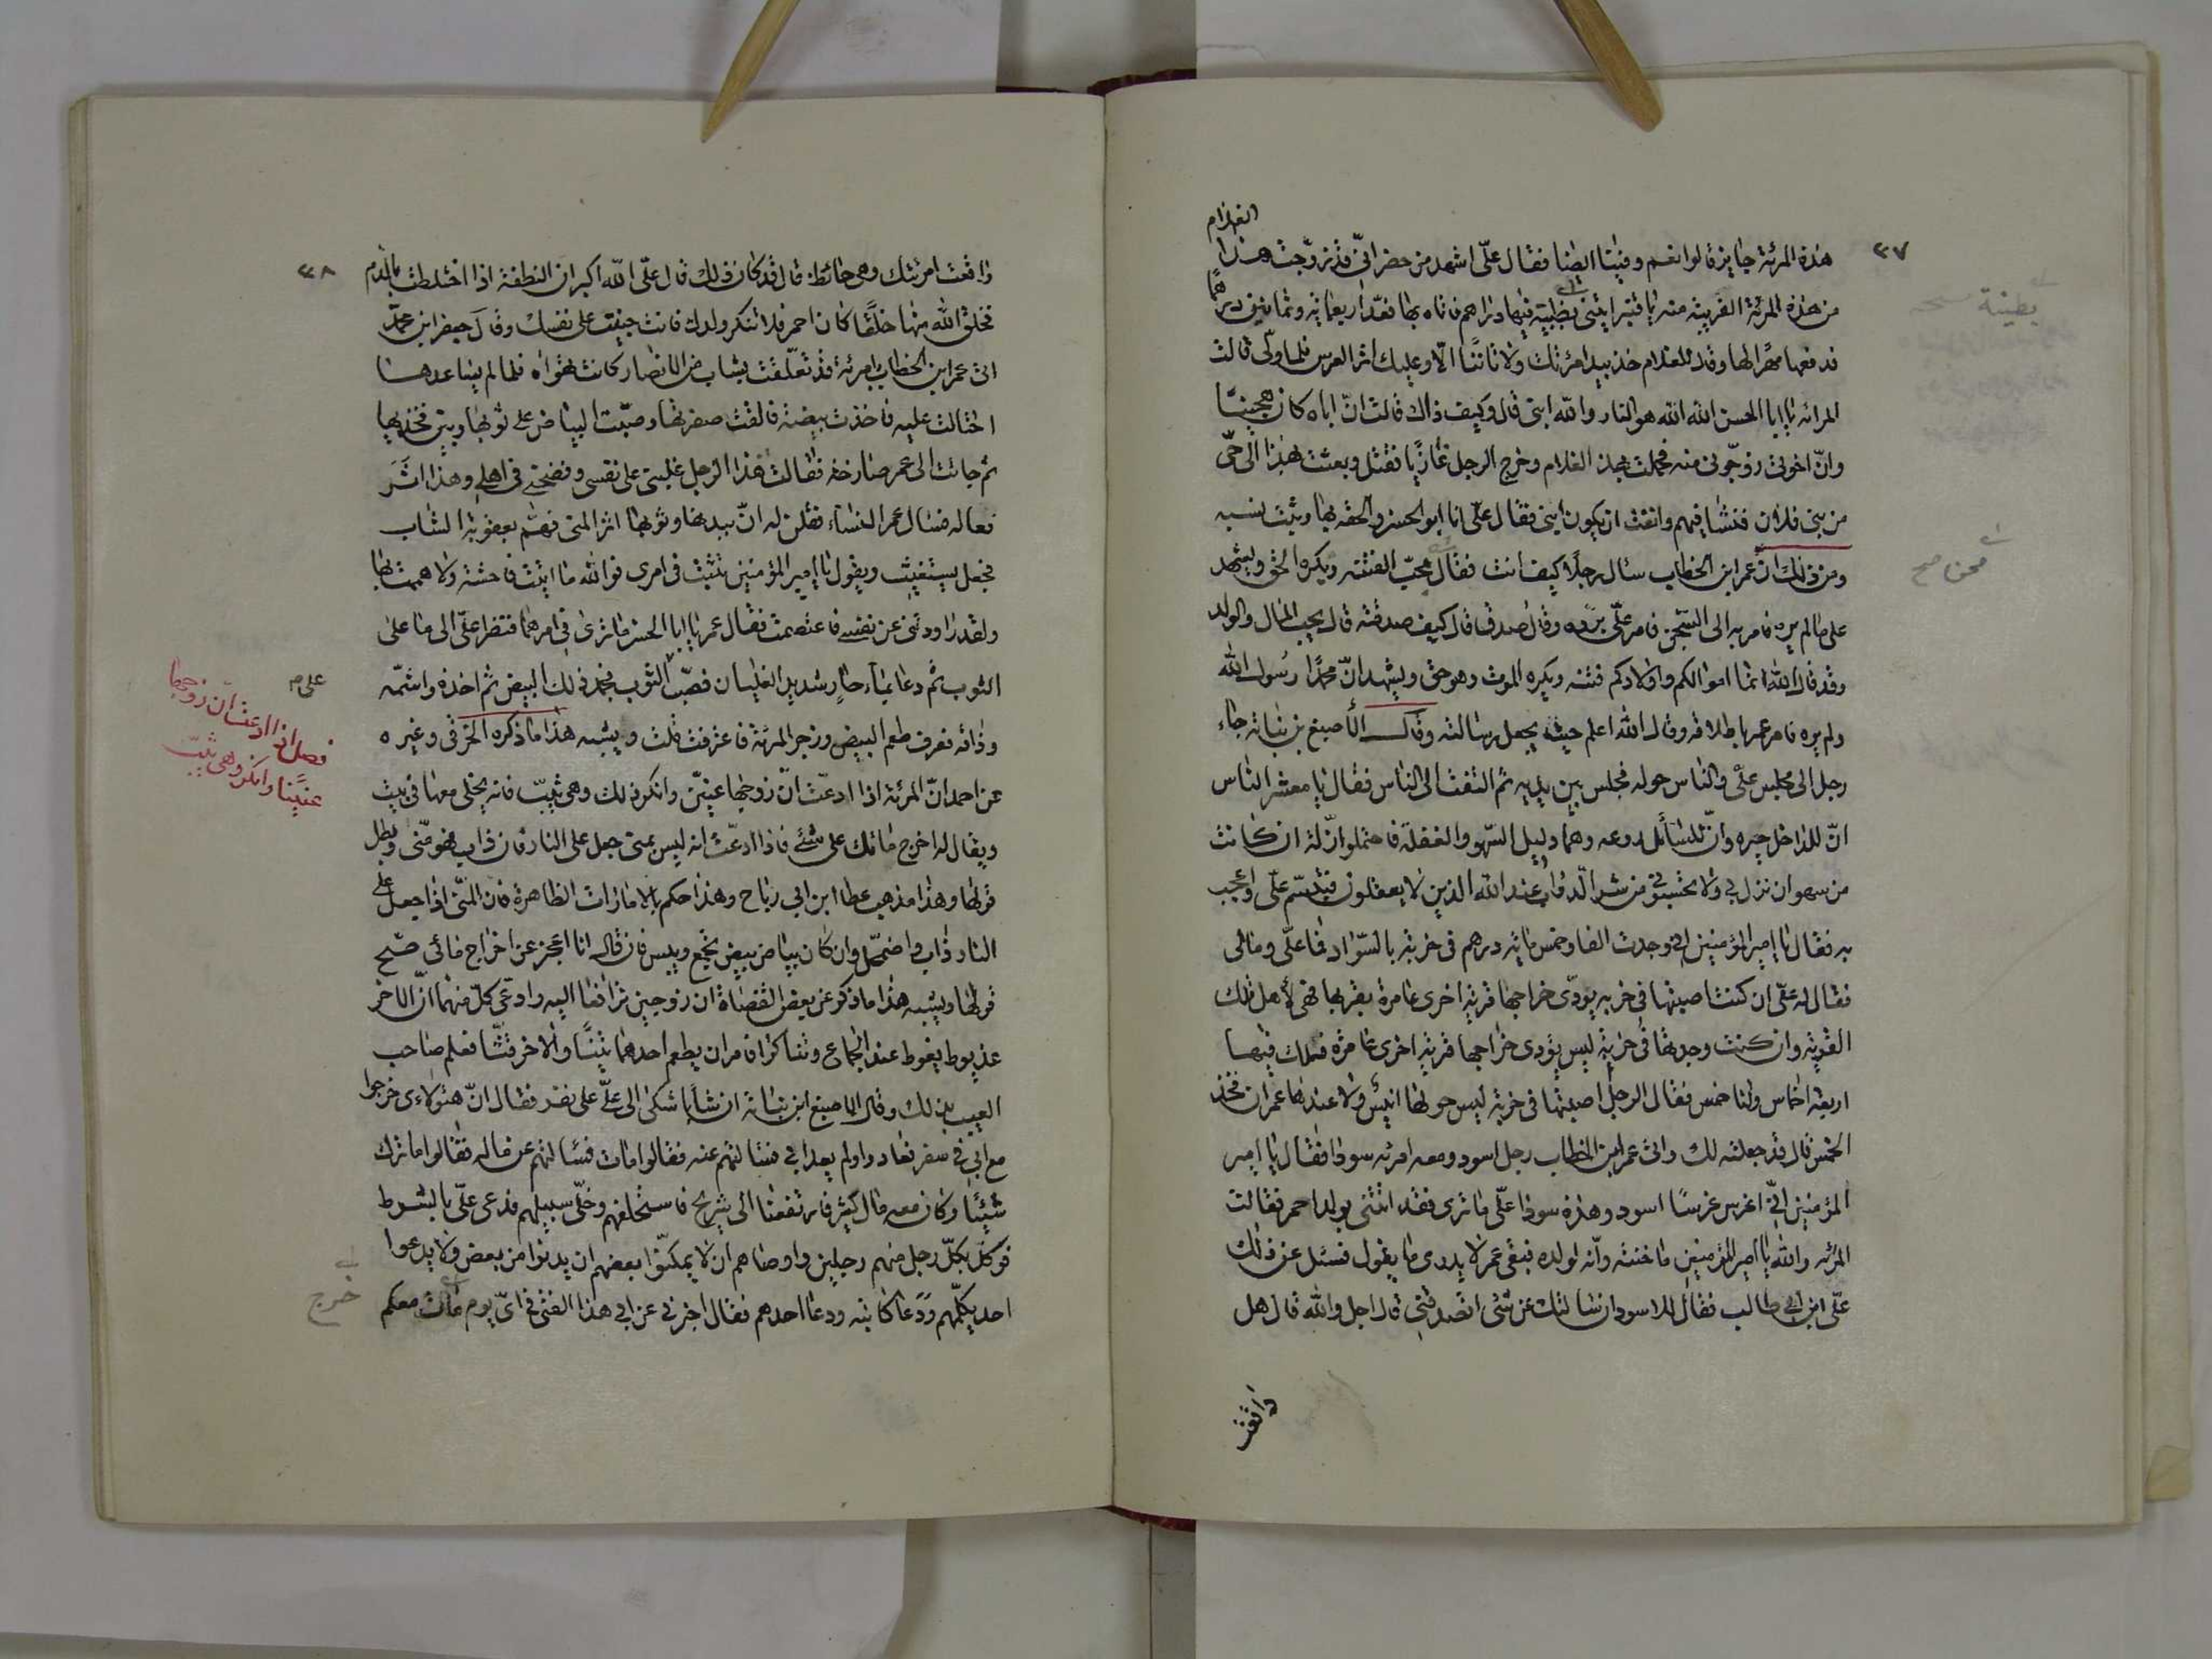 ٣٧
الغلام
هذه المرئة جايز قالوا نعم وفينا ايضا فقال علّى اشهد من حضر انّى قد زوّجت هذا
من هذه المرئة القريبة منه يا قنبر ايتنى بطيبة فيها دراهم فاتاه بها فعدّ اربعمائة وثمانين درهمًا
فدفعها مهرًا لها وقال للغلام خذ بيد امرئتك ولا تاتنا الّا وعليك اثر العرس فلما ولّى قالت
المرائة يا ابا الحسن الله الله هو النار والله ابنى قال وكيف ذاك قالت انّ اباه كان هجينًا
وانّ اخوتى زوّجونى منه فحملت بهذا الغلام وخرج الرجل غازيًا فقتل وبعثت بهذا الى حّى
من بنى فلان فنشا فيهم وانفت ان يكون ابنى فقال علّى انا ابو الحسن والحقه بها ويثبت نسبه
ومن ذلك انّ عمر ابن الخطاب سئال رجلًا كيف انت فقال محبّ الفتنه ويكره الحق ويشهد
على ما لم يره فامر به الى السّجن فامر علّى بردّه وقال صُدق قال كيف صدقته قال يحب المال والولد
وقد قال الله انما اموالكم واولادكم فتنه ويكره الموت وهو حق ويشهد انّ محمّدًا رسول الله
ولم يره فامر عمر باطلاقه وقال الله اعلم حيث يجعل رسالته وقال الأصبغ بن نباته جاء
رجل الى مجلس علّى والناس حوله فجلس بين يديه ثم التفت الى الناس فقال يا معشر الناس
انّ للداخل حيره وانّ للسّائل روعه وهما دليل السّهو والغفلة فاحتملوا زلّة ان كانت
من سهو ان نزل بى ولا تحسبونى من شر الّدواب عند الله الذين لا يعقلون فتبسّم علّى واعجب
به فقال يا امير المؤمنين انّى وجدت الفا وخمس مائه درهم فى خربة بالسّواد فما علّى ومالى
فقال له علّى ان كنت اصبتها فى خربه يؤدّى خراجها قرية اخرى عامرة بقربها فهى لأهل تلك
القرية وان كنت وجدتها فى خربة ليس يؤدى خراجها قرية اخرى عامرة فلك فيها
اربعة اخماس ولنا خمس فقال الرجل اصبتها فى خربة ليس حولها انيس ولا عندها عمران فخذ
الخمس قال قد جعلته لك واتى عمر ابن الخطاب رجل اسود ومعه امرئه سودا فقال يا امير
المؤمنين انّى اغرس غرسًا اسود وهذه سودا علّى ما ترى فقد اتتنى بولد احمر فقالت
المرئه والله يا امير المؤمنين ما خنته وانّه لولده فبقى عمر لا يدرى ما يقول فسئل عن ذلك
علّى ابن ابى طالب فقال للاسود ان سالتك عن شئى اتصدقنى قال اجل والله قال هل
واقعت
٣٨
واقعت امرئتك وهى حائض قال قد كان ذلك قال علّى الله اكبر ان النطفة اذا اختلطت بالّدم
فخلق الله منها خلقًا كان احمر فلا تنكر ولدك فانت جنيت على نفسك وقال جعفر ابن محمّد
اتى عمر ابن الخطاب بامرئة قد تعلّقت بشاب من الانصار كانت تهواه فلما لم يساعدها
احتالت عليه فاخذت بيضة فالقت صفرتها وصبّت البياض على ثوبها وبين فخذيها
ثم جائت الى عمر صارخة فقالت هذا الرجل غلبنى على نفسى وفضحنى فى اهلى وهذا اثَر
فعاله فسال عمر النساء فقلن له انّ ببدنها وثوبها اثر المنى فهمّ بعقوبة الشاب
فجعل يستغيث ويقول يا امير المؤمنين تثبّت فى امرى فوالله ما اتيت فاحشة ولا هممت بها
ولقد راودتنى عن نفسى فاعتصمت فقال عمر يا ابا الحسن ما ترى فى امرهما فنظر علّى الى ما على
الثوب ثم دعا بماء حارّ شديد الغليان فصبّ الثوب فجمد ذلك البيض ثم اخذه واشتمّه
وذاقه فعرف طعم البيض وزجر المرئة فاعترفت قلت ويشبه هذا ما ذكره الخرقى وغيره
عن احمد انّ المرئة اذا ادعّت انّ زوجها عنيّن وانكر ذلك وهى ثيّب فانه يخلى معها فى بيت
ويقال له اخرج مائك على شئى فاذا ادعّت انه ليس بمنى جعل على النار فان ذاب فهو منّى وبطل
قولها وهذا مذهب عطا ابن ابى رباح وهذا حكم بالامارات الظاهرة فان المنّى اذا جعل على
النار ذاب واضمحّل وان كان بياض بيض تجمّع ويبس فان قال انا اعجز عن اخراج مائى صّح
قولها ويشبه هذا ما ذكر عن بعض القضاة ان زوجين ترافعا اليه وادعّى كلّ منهما انّ الاخر
عذيوط يغوط عند الجماع وتناكرا فامر ان يطعم احدهما تينًا والاخر قثّا فعلم صاحب
العيب بذلك وقال الاصبغ ابن نباتة ان شابا شكى الى علّى على نفر فقال انّ هئولاءى خرجوا
مع ابى فى سفر فعادوا ولم يعد ابى فسالتهم عنه فقالوا مات فسئالتهم عن ماله فقالوا ما ترك
شيئًا وكان معه مال كثير فارتفعنا الى شريح فاستحلفهم وخلّى سبيلهم فدعى علّى بالشرط
فوكلّ بكلّ رجل منهم رجلين واوصاهم ان لا يمكنّوا بعضهم ان يدنوا من بعض ولا يدعوا
احد يكلّمهم ودعا كاتبه ودعا احدهم فقال اخبرنى عن ابى هذا الفتى فى اىّ يوم مات معكم
فصل اذا ادعت ان زوجها
عنيّنًا وانكر وهى ثيّب
خرج